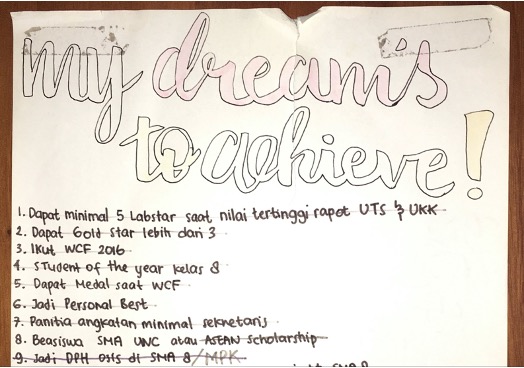 my dream's
to achieve!
1. Dapat minimal 5 Labstar saat nilai tertinggi rapot UTS & UKK
2. Dapat Gold Star lebih dari 3
3. Ikut WCF 2016
4. STudent of the year kelas 8
5. Dapat Medal saat WCF
6. Jadi Personal Best
7. Panitia angkatan minimal sekretaris
8. Beasiswa SMA UNC atau ASEAN Scholarship
9. Jadi DPH OSIS di SMA 8/MPK